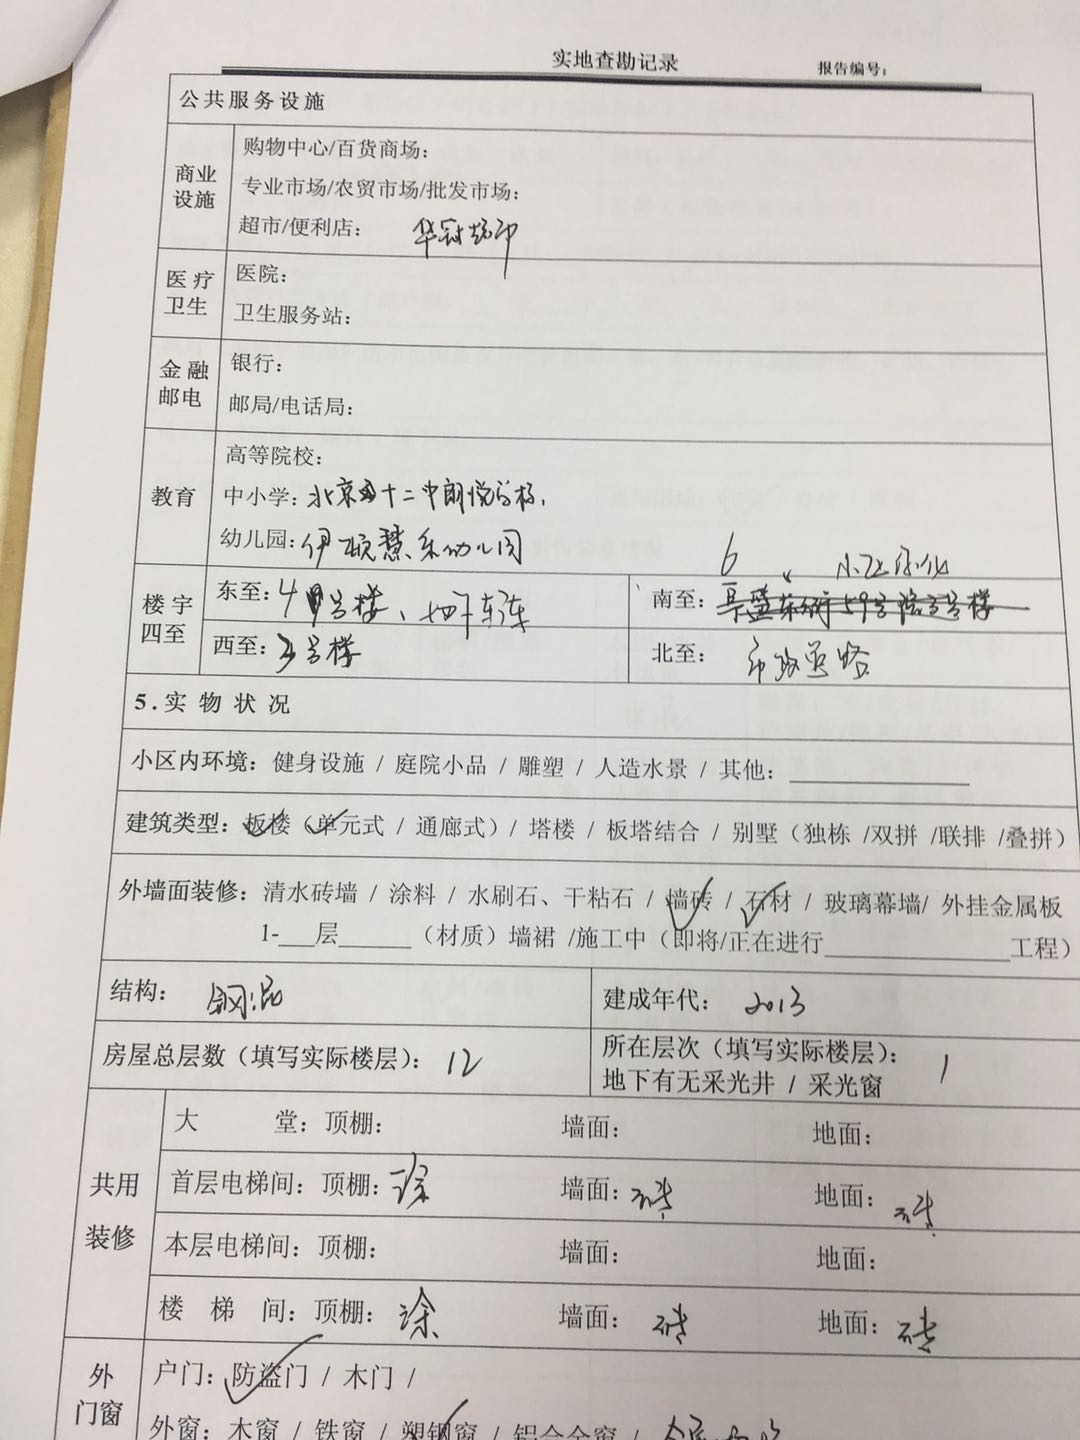 实地查勘记录
报告编号：
公共服务设施
商业设施
购物中心/百货商场：
专业市场/农贸市场/批发市场：
超市/便利店： 华冠超市
医疗卫生
医院：
卫生服务站：
金融邮电
银行：
邮局/电话局：
教育
高等院校：
中小学：北京十二中朗悦学校
幼儿园：伊顿慧乐幼儿园
楼宇四至
东至：4号楼、
南至：6
西至：3号楼
北至：市政道路
5.实物状况
小区内环境：健身设施 / 庭院小品 / 雕塑 / 人造水景 / 其他：
建筑类型：板楼（单元式 / 通廊式）/ 塔楼 / 板塔结合 / 别墅（独栋 /双拼 /联排 /叠拼）
外墙面装修：清水砖墙 / 涂料 / 水刷石、干粘石 / 墙砖 / 石材 / 玻璃幕墙/ 外挂金属板
1-___层______（材质）墙裙 /施工中（即将/正在进行________________工程）
结构： 钢混
建成年代： 2013
房屋总层数（填写实际楼层）： 12
所在层次（填写实际楼层）： 1
地下有无采光井 / 采光窗
共用装修
大 堂：顶棚： 墙面： 地面：
首层电梯间：顶棚：涂 墙面：砖 地面：砖
本层电梯间：顶棚： 墙面： 地面：
楼 梯 间：顶棚：涂 墙面：砖 地面：砖
外门窗
户门：防盗门 / 木门 /
外窗：木窗 / 铁窗 / 塑钢窗 / 铝合金窗 /